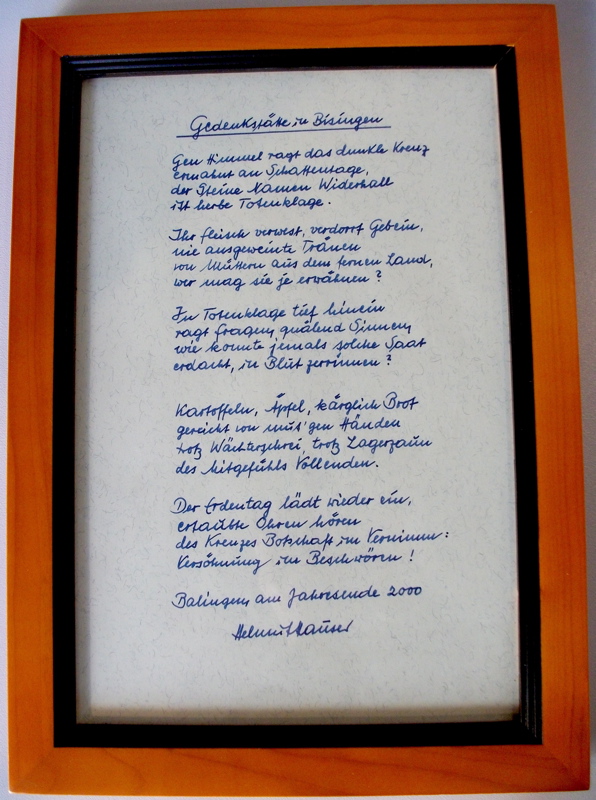 Gedenkstätte in Bisingen
Gen Himmel ragt das dunkle Kreuz
ermahnt an Schattentage,
der Steine Namen Widerhall
ist herbe Totenklage.
Ihr Fleisch verwest, verdorrt Gebein,
nie ausgeweinte Tränen
von Müttern aus dem fernen Land,
wer mag sie je erwähnen?
In Totenklage tief hinein
ragt fragen, quälend Sinnen,
wie konnte jemals solche Saat
erdacht, in Blut zerrinnen?
Kartoffeln, Äpfel, kärglich Brot
gereicht von mut'gen Händen
trotz Wächterschrei, trotz Lagerzaun
des Mitgefühls Vollenden.
Der Erdentag lädt wieder ein,
ertaubte Ohren hören
des Kreuzes Botschaft im Vernimm:
Versöhnung im Beschwören!
Balingen, am Jahresende 2000
Helmut Hauser